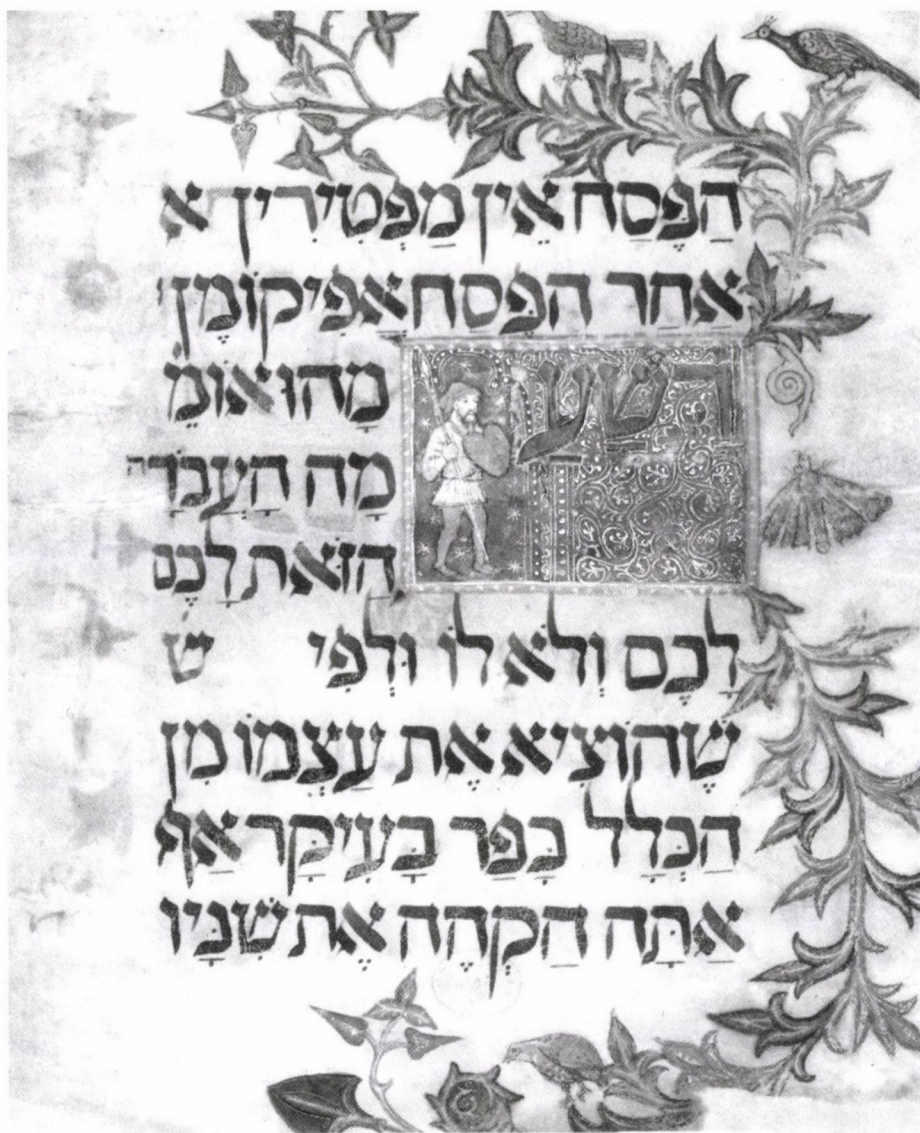 הַפֶּסַח אֵין מַפְטִירִין א
אַחַר הפֶּסח אֲפִיקוֹמָן
רשע
מָהוּ אוֹמֵ
מָה הָעֲבֹדָה
הַזֹּאת לָכֶם
לָכֶם וְלֹא לוֹ וּלְפִי ש
שֶׁהוֹצִיא אֶת עַצְמוֹ מִן
הַכְּלָל כָּפַר בָּעִיקָּר אַף
אַתָּה הַקְהֶה אֶת שִׁנָּיו